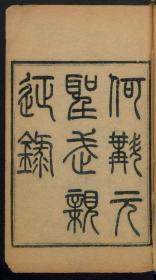 何氏元
聖武親
征錄